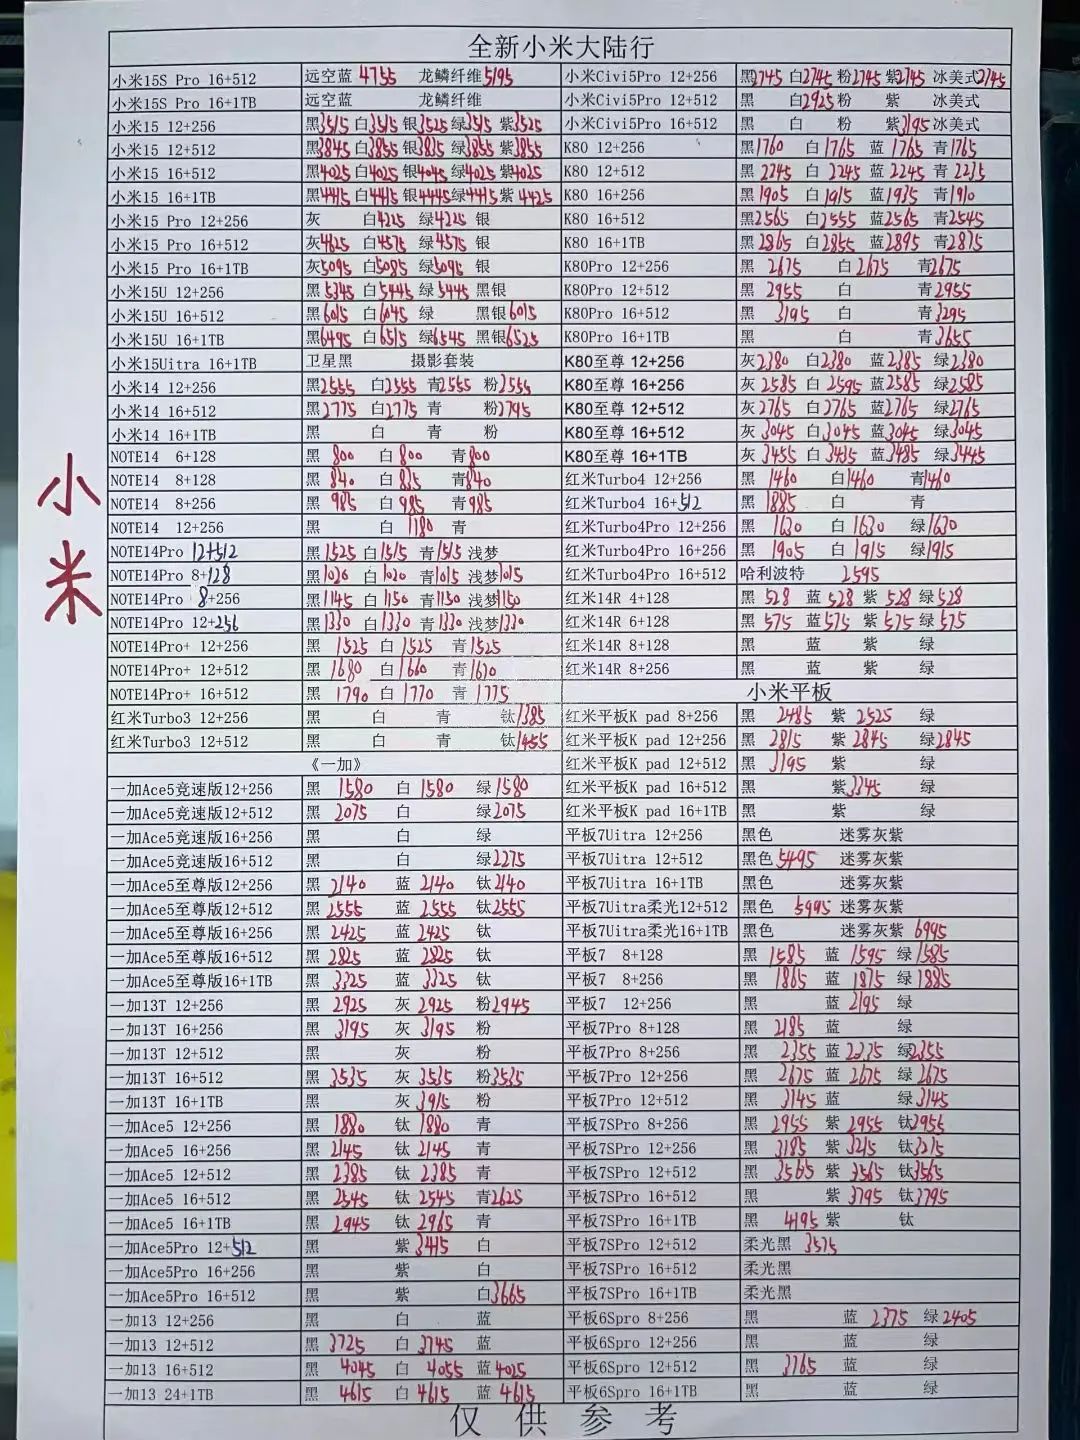 全新小米大陆行
小米15S Pro 16+512 远空蓝 4755 龙鳞纤维 5195
小米15S Pro 16+1TB 远空蓝 龙鳞纤维
小米15 12+256 黑3515 白3515 银3525 绿3515 紫3525
小米15 12+512 黑3845 白3855 银3835 绿3855 紫3855
小米15 16+512 黑4025 白4025 银4045 绿4025 紫4025
小米15 16+1TB 黑4415 白4415 银4445 绿4415 紫4425
小米15 Pro 12+256 灰 白4225 绿4225 银
小米15 Pro 16+512 灰4625 白4575 绿4575 银
小米15 Pro 16+1TB 灰5095 白5085 绿5095 银
小米15U 12+256 黑5345 白5445 绿5445 黑银
小米15U 16+512 黑6015 白6045 绿 黑银6015
小米15U 16+1TB 黑6495 白6515 绿6545 黑银6525
小米15Uitra 16+1TB 卫星黑 摄影套装
小米14 12+256 黑2555 白2555 青2555 粉2555
小米14 16+512 黑2775 白2775 青 粉2795
小米14 16+1TB 黑 白 青 粉
NOTE14 6+128 黑 800 白 800 青800
NOTE14 8+128 黑 840 白 835 青840
NOTE14 8+256 黑 985 白 985 青985
NOTE14 12+256 黑 白 1180 青
NOTE14Pro 12+512 黑1525 白1515 青1515 浅梦
NOTE14Pro 8+128 黑1020 白1020 青1015 浅梦1015
NOTE14Pro 8+256 黑1145 白1150 青1150 浅梦1150
NOTE14Pro 12+256 黑1330 白1330 青1330 浅梦1330
NOTE14Pro+ 12+256 黑 1525 白 1525 青1525
NOTE14Pro+ 12+512 黑 1680 白 1660 青1670
NOTE14Pro+ 16+512 黑 1790 白 1770 青 1775
红米Turbo3 12+256 黑 白 青 钛1385
红米Turbo3 12+512 黑 白 青 钛1455
《一加》
一加Ace5竞速版12+256 黑 1580 白 1580 绿1580
一加Ace5竞速版12+512 黑 2075 白 绿2075
一加Ace5竞速版16+256 黑 白 绿
一加Ace5竞速版16+512 黑 白 绿2275
一加Ace5至尊版12+256 黑 2140 蓝 2140 钛2140
一加Ace5至尊版12+512 黑 2555 蓝 2555 钛2555
一加Ace5至尊版16+256 黑 2425 蓝 2425 钛
一加Ace5至尊版16+512 黑 2825 蓝 2825 钛
一加Ace5至尊版16+1TB 黑 3325 蓝 3325 钛
一加13T 12+256 黑 2925 灰 2925 粉2945
一加13T 16+256 黑 3195 灰 3195 粉
一加13T 12+512 黑 灰 粉
一加13T 16+512 黑 3535 灰 3535 粉3535
一加13T 16+1TB 黑 灰 3915 粉
一加Ace5 12+256 黑 1880 钛 1880 青
一加Ace5 16+256 黑 2145 钛 2145 青
一加Ace5 12+512 黑 2385 钛 2385 青
一加Ace5 16+512 黑 2545 钛 2545 青2625
一加Ace5 16+1TB 黑 2945 钛 2965 青
一加Ace5Pro 12+512 黑 紫3415 白
一加Ace5Pro 16+256 黑 紫 白
一加Ace5Pro 16+512 黑 紫 白3665
一加13 12+256 黑 白 蓝
一加13 12+512 黑 3725 白 3745 蓝
一加13 16+512 黑 4045 白 4055 蓝4025
一加13 24+1TB 黑 4615 白 4615 蓝 4615
小米Civi5Pro 12+256 黑2745 白2745 粉2745 紫2745 冰美式2745
小米Civi5Pro 12+512 黑 白2925 粉 紫 冰美式
小米Civi5Pro 16+512 黑 白 粉 紫3195 冰美式
K80 12+256 黑1760 白 1765 蓝 1765 青1765
K80 12+512 黑 2245 白 2245 蓝 2245 青 2235
K80 16+256 黑1905 白 1915 蓝1935 青1910
K80 16+512 黑2565 白2555 蓝2565 青2545
K80 16+1TB 黑2865 白2855 蓝2895 青2875
K80Pro 12+256 黑 2675 白 2675 青2675
K80Pro 12+512 黑 2955 白 青2955
K80Pro 16+512 黑 3195 白 青3295
K80Pro 16+1TB 黑 白 青3655
K80至尊 12+256 灰2380 白2380 蓝2385 绿2380
K80至尊 16+256 灰2585 白2595 蓝2585 绿2585
K80至尊 12+512 灰2765 白2765 蓝2765 绿2765
K80至尊 16+512 灰3045 白3045 蓝3045 绿3045
K80至尊 16+1TB 灰 3455 白3435 蓝3485 绿3445
红米Turbo4 12+256 黑 1460 白1460 青1460
红米Turbo4 16+512 黑 1885 白 青
红米Turbo4Pro 12+256 黑 1630 白 1630 绿1630
红米Turbo4Pro 16+256 黑 1905 白 1915 绿1915
红米Turbo4Pro 16+512 哈利波特 2595
红米14R 4+128 黑 528 蓝 528 紫 528 绿528
红米14R 6+128 黑 575 蓝575 紫 575 绿575
红米14R 8+128 黑 蓝 紫 绿
红米14R 8+256 黑 蓝 紫 绿
小米平板
红米平板K pad 8+256 黑 2485 紫 2525 绿
红米平板K pad 12+256 黑 2815 紫 2845 绿2845
红米平板K pad 12+512 黑 3195 紫 绿
红米平板K pad 16+512 黑 紫3345 绿
红米平板K pad 16+1TB 黑 紫 绿
平板7Uitra 12+256 黑色 迷雾灰紫
平板7Uitra 12+512 黑色 5495 迷雾灰紫
平板7Uitra 16+1TB 黑色 迷雾灰紫
平板7Uitra柔光12+512 黑色 5995 迷雾灰紫
平板7Uitra柔光16+1TB 黑色 迷雾灰紫 6995
平板7 8+128 黑 1585 蓝 1595 绿1585
平板7 8+256 黑 1865 蓝 1875 绿1885
平板7 12+256 黑 蓝 2195 绿
平板7Pro 8+128 黑 2185 蓝 绿
平板7Pro 8+256 黑 2355 蓝 2235 绿2355
平板7Pro 12+256 黑 2675 蓝 2675 绿 2675
平板7Pro 12+512 黑 3145 蓝 绿3145
平板7SPro 8+256 黑 2955 紫 2955 钛2955
平板7SPro 12+256 黑 3185 紫 3215 钛3215
平板7SPro 12+512 黑 3565 紫 3565 钛3565
平板7SPro 16+512 黑 紫 3795 钛3795
平板7SPro 16+1TB 黑 4195 紫 钛
平板7SPro 12+512 柔光黑 3575
平板7SPro 16+512 柔光黑
平板7SPro 16+1TB 柔光黑
平板6Spro 8+256 黑 蓝 2375 绿2405
平板6Spro 12+256 黑 蓝 绿
平板6Spro 12+512 黑 3165 蓝 绿
平板6Spro 16+1TB 黑 蓝 绿
仅供参考
小米